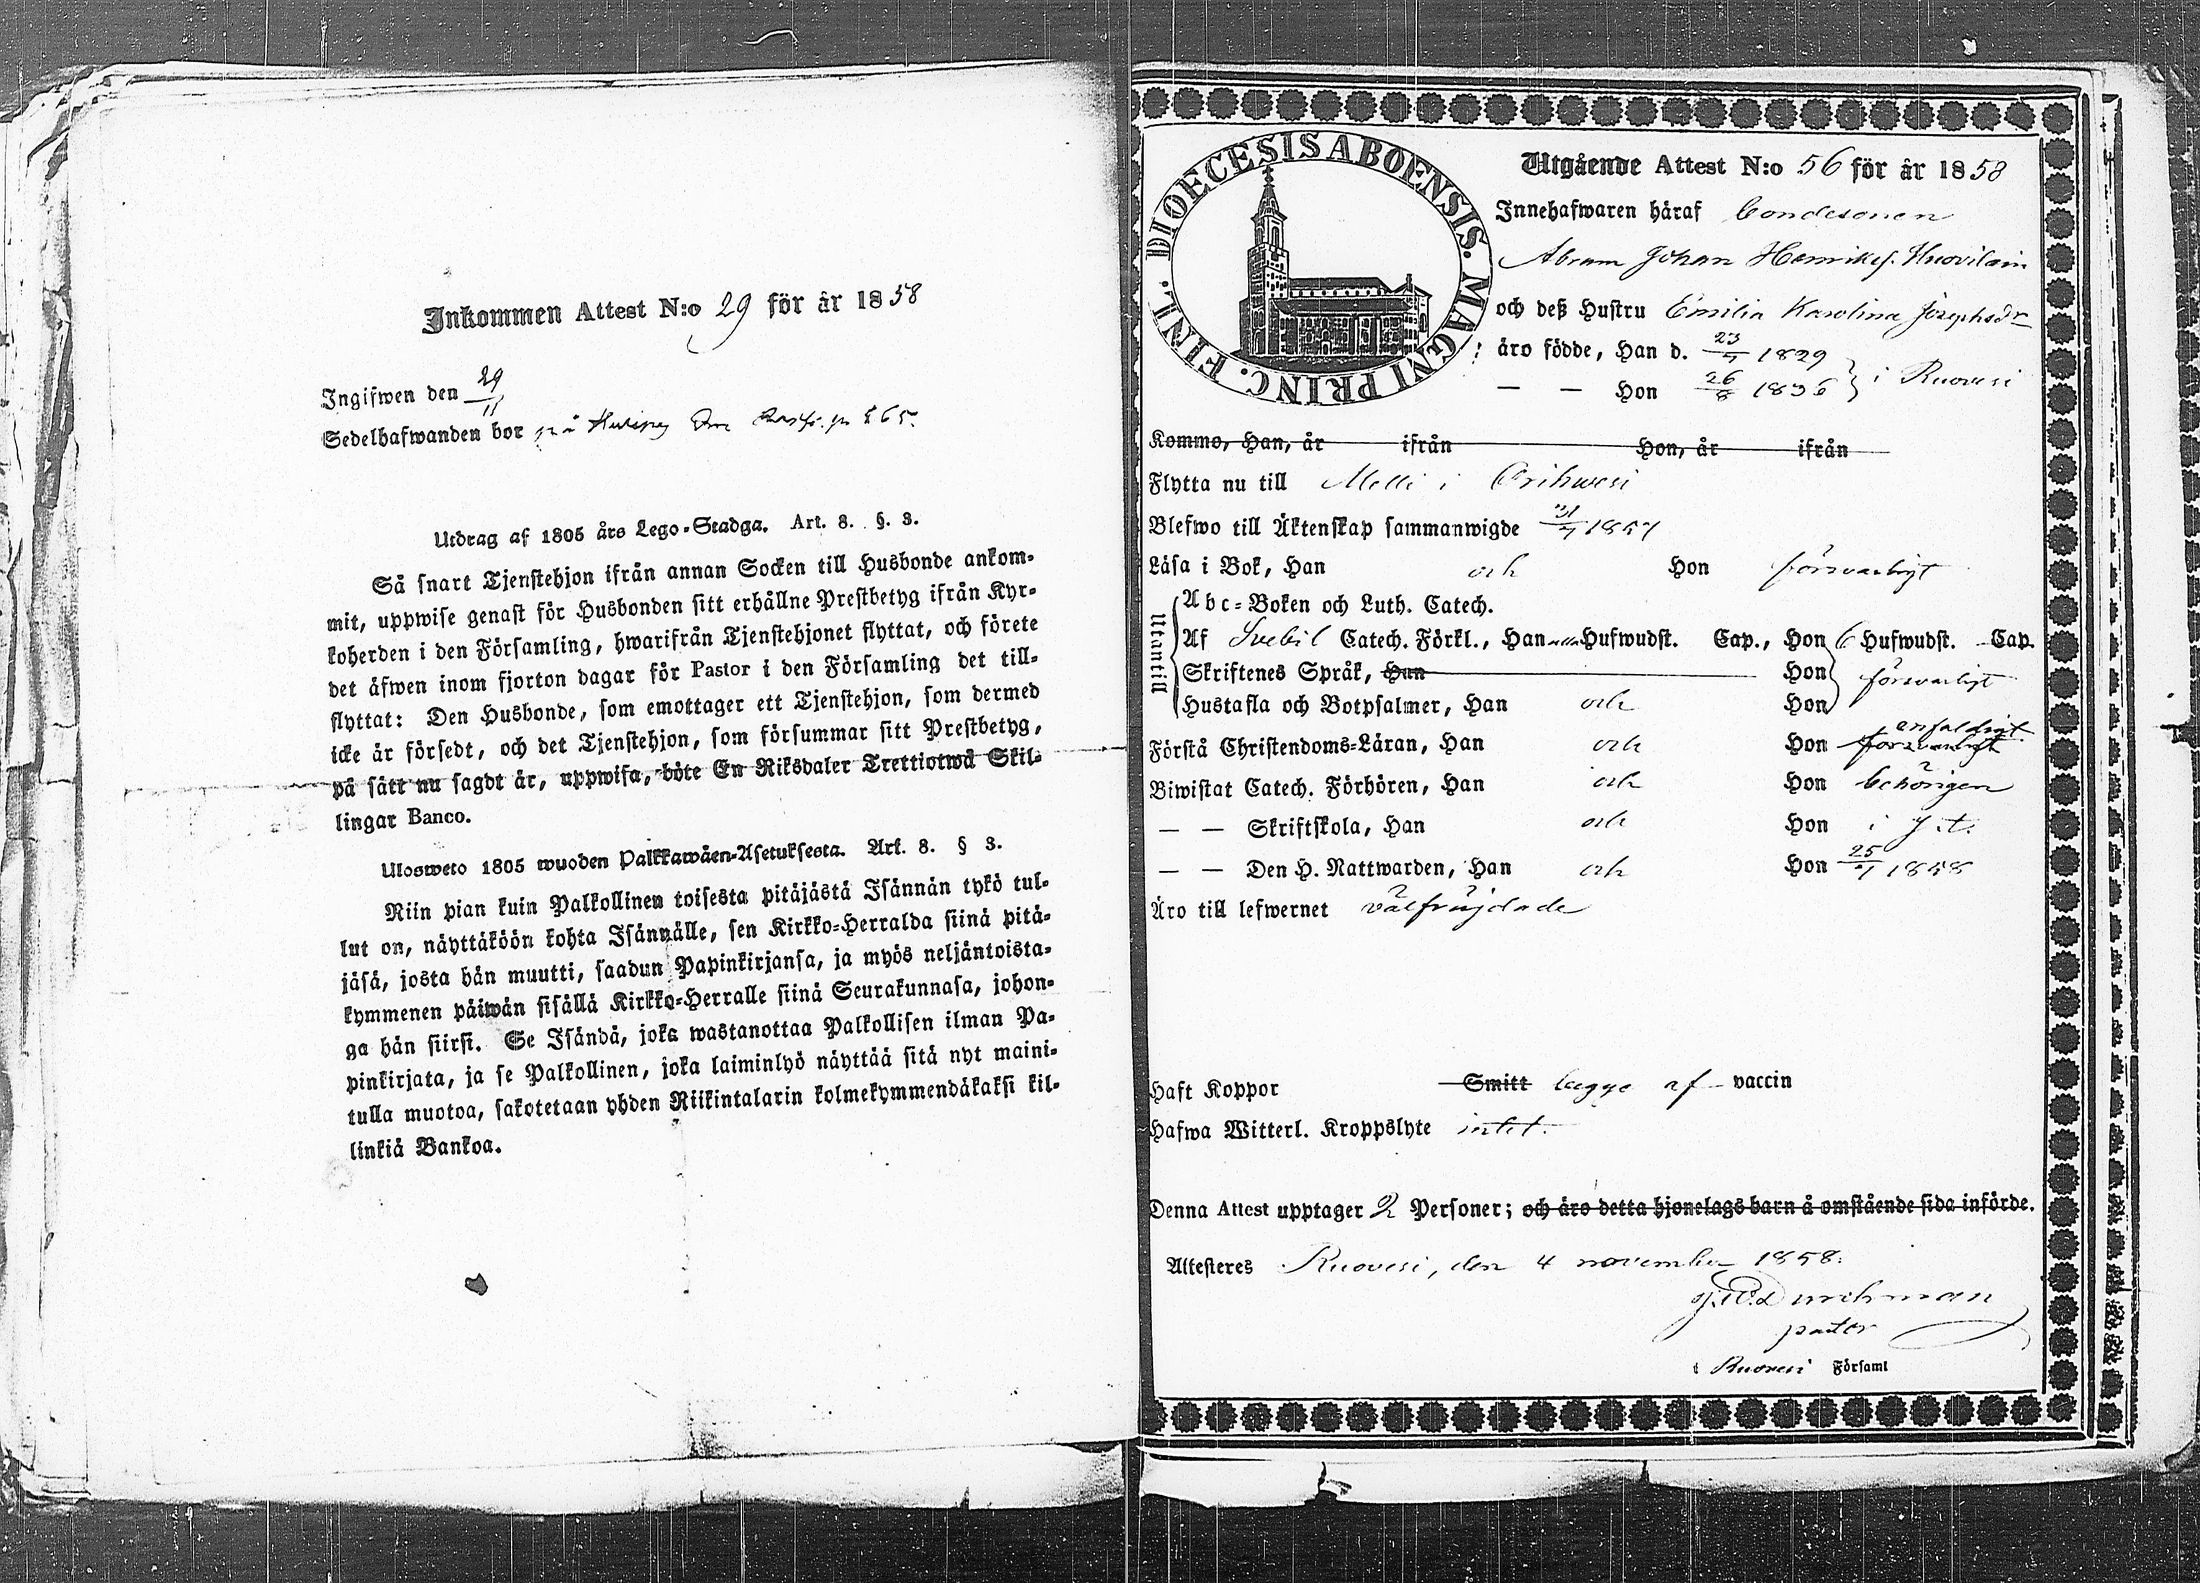 Inkommen Attest N:o 29 för år 1858
Ingifwen den 29/11
Sedelhafwanden bor på
Utdrag af 1805 års Lego-Stadga. Art. 8. §. 3.
Så snart Tjenstehjon ifrån annan Socken till Husbonde ankom-
mit, uppwise genast för Husbonden sitt erhållne Prestbetyg ifrån Kyr-
koherden i den Församling, hwarifrån Tjenstehjonet flyttat, och förete
det äfwen inom fjorton dagar för Pastor i den Församling det till-
flyttat: Den Husbonde, som emottager ett Tjenstehjon, som dermed
icke är försedt, och det Tjenstehjon, som försummar sitt Prestbetyg,
på sätt nu sagdt är, uppwisa, böte En Riksdaler Trettiotwå Skil-
lingar Banco.
Ulosweto 1805 wuoden Palkkawäen-Asetuksesta. Art. 8. § 3.
Niin pian kuin Palkollinen toisesta pitäjästä Isännän tykö tul-
lut on, näyttäköön kohta Isännälle, sen Kirkko-Herralda siinä pitä-
jäsä, josta hän muutti, saadun Papinkirjansa, ja myös neljäntoista-
kymmenen päiwän sisällä Kirkko-Herralle siinä Seurakunnasa, johon-
ga hän siirsi. Se Isändä, joka wastanottaa Palkollisen ilman Pa-
pinkirjata, ja se Palkollinen, joka laiminlyö näyttää sitä nyt maini-
tulla muotoa, sakotetaan yhden Riikintalarin kolmekymmendäkaksi kil-
linkiä Bankoa.
DIOECESIS ABOENSIS. MAGNI PRINC. FINL.
Utgående Attest N:o 56 för år 1858
Innehafwaren häraf bondesonen
Abram Johan Henriksf. Huovilain
och deß Hustru Emilia Karolina Josephsdr
äro födde, Han d. 23/7 1829
— — Hon 26/8 1836 } i Ruovesi
Kommo, Han, år ifrån Hon, år ifrån
Flytta nu till Melli i Orihwesi
Blefwo till Äktenskap sammanwigde 31/7 1857
Läsa i Bok, Han och Hon försvarligt
Utantill
Abc-Boken och Luth. Catech.
Af Svebil Catech. Förkl., Han Hufwudst. Cap., Hon 6 Hufwudst. Cap.
Skriftenes Språk, Han Hon försvarligt
Hustafla och Botpsalmer, Han och Hon
enfaldigt
Förstå Christendoms-Läran, Han och Hon försvarligt
Biwistat Catech. Förhören, Han och Hon behörigen
— — Skriftskola, Han och Hon i J. t.
— — Den H. Nattwarden, Han och Hon 25/7 1858
Äro till lefwernet välfräjdade
Haft Koppor Smitt begge af vaccin
Hafwa Witterl. Kroppslyte intet.
Denna Attest upptager 2 Personer; och äro detta hjonelags barn å omstående sida införde.
Attesteres Ruovesi, den 4 november 1858.
Durchman
pastor
i Ruovesi Församl